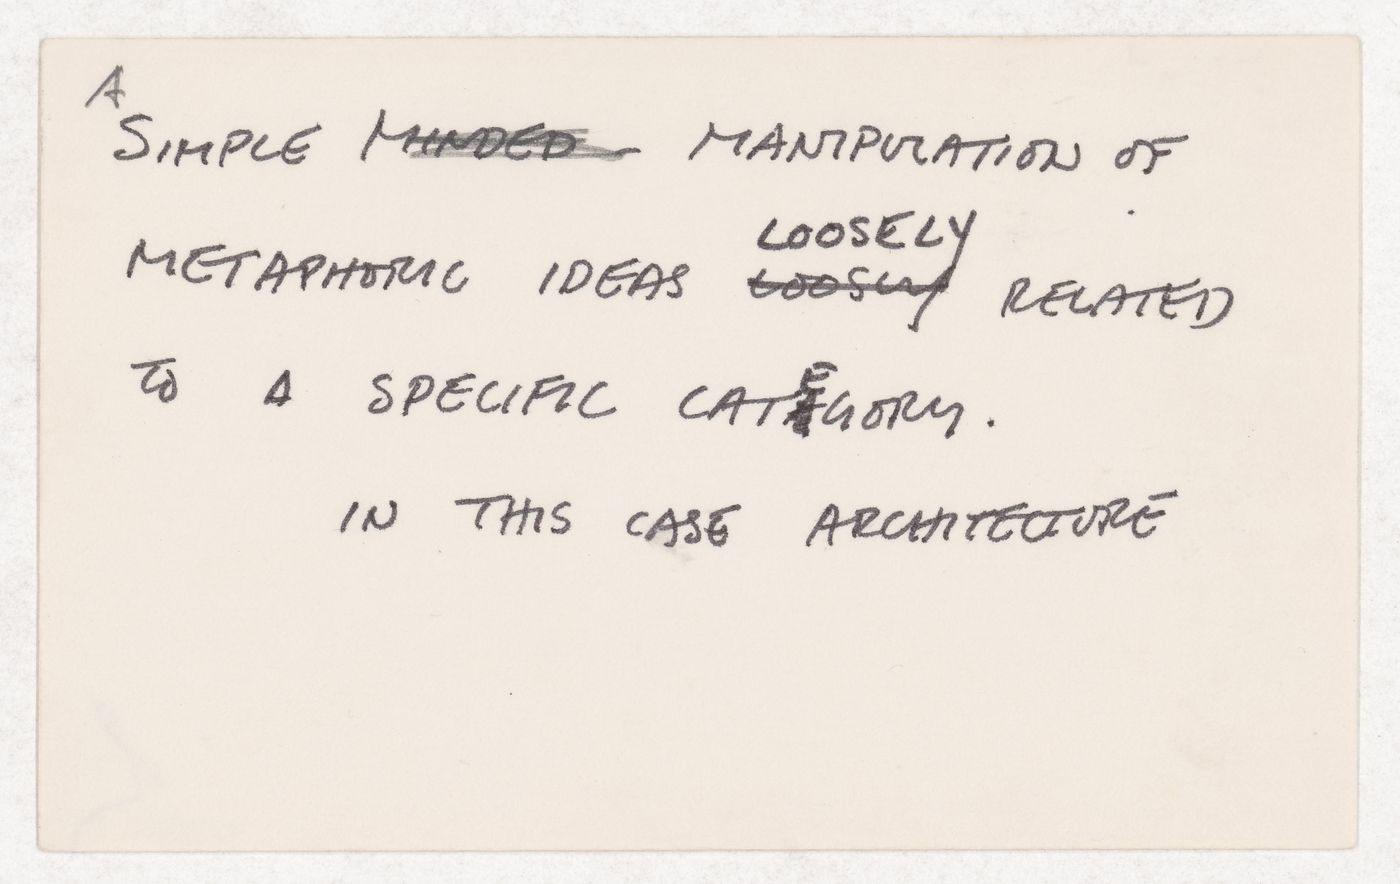 A
SIMPLE MINDED MANIPULATION OF
LOOSELY
METAPHORIC IDEAS LOOSLY RELATED
TO A SPECIFIC CATEGORY.
IN THIS CASE ARCHITECTURE